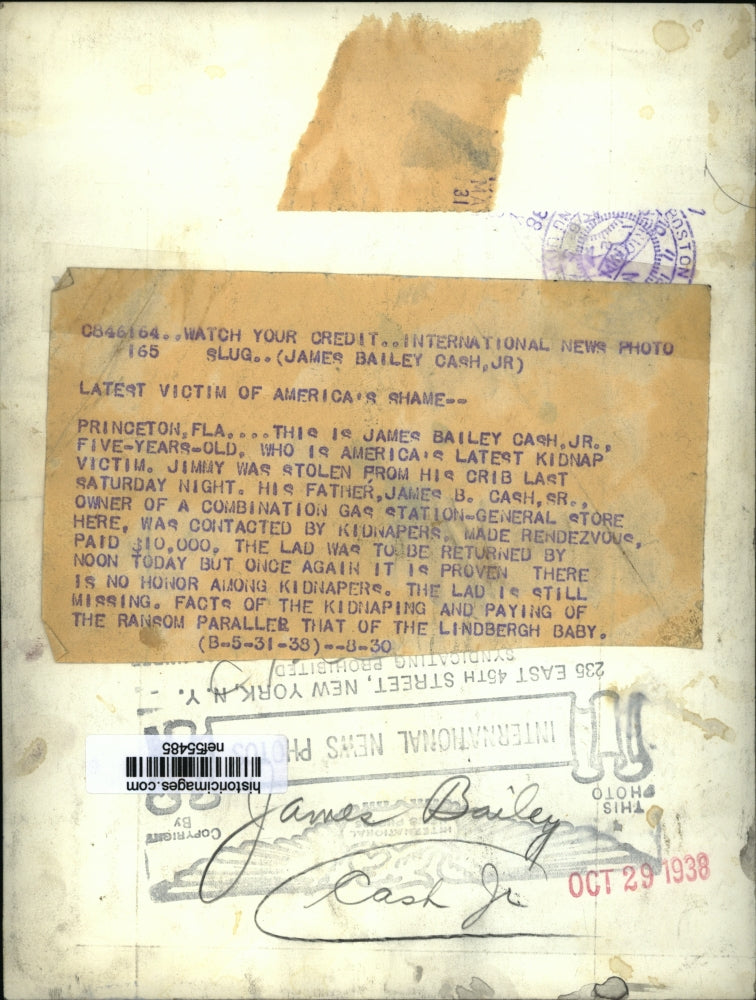 MA
31
BOSTON
C846164..WATCH YOUR CREDIT..INTERNATIONAL NEWS PHOTO
165 SLUG..(JAMES BAILEY CASH,JR)
LATEST VICTIM OF AMERICA'S SHAME--
PRINCETON,FLA....THIS IS JAMES BAILEY CASH,JR.,
FIVE-YEARS-OLD, WHO IS AMERICA'S LATEST KIDNAP
VICTIM. JIMMY WAS STOLEN FROM HIS CRIB LAST
SATURDAY NIGHT. HIS FATHER,JAMES B. CASH,SR.,
OWNER OF A COMBINATION GAS STATION-GENERAL STORE
HERE, WAS CONTACTED BY KIDNAPERS, MADE RENDEZVOUS,
PAID $10,000, THE LAD WAS TO BE RETURNED BY
NOON TODAY BUT ONCE AGAIN IT IS PROVEN THERE
IS NO HONOR AMONG KIDNAPERS. THE LAD IS STILL
MISSING. FACTS OF THE KIDNAPING AND PAYING OF
THE RANSOM PARALLEL THAT OF THE LINDBERGH BABY.
(B-5-31-38)--8-30
SYNDICATING PROHIBITED
235 EAST 45TH STREET, NEW YORK, N.Y.
INTERNATIONAL NEWS PHOTOS
nef55485
historicimages.com
THIS
PHOTO
COPYRIGHT
By
INTERNATIONAL
James Bailey
Cash Jr
OCT 29 1938